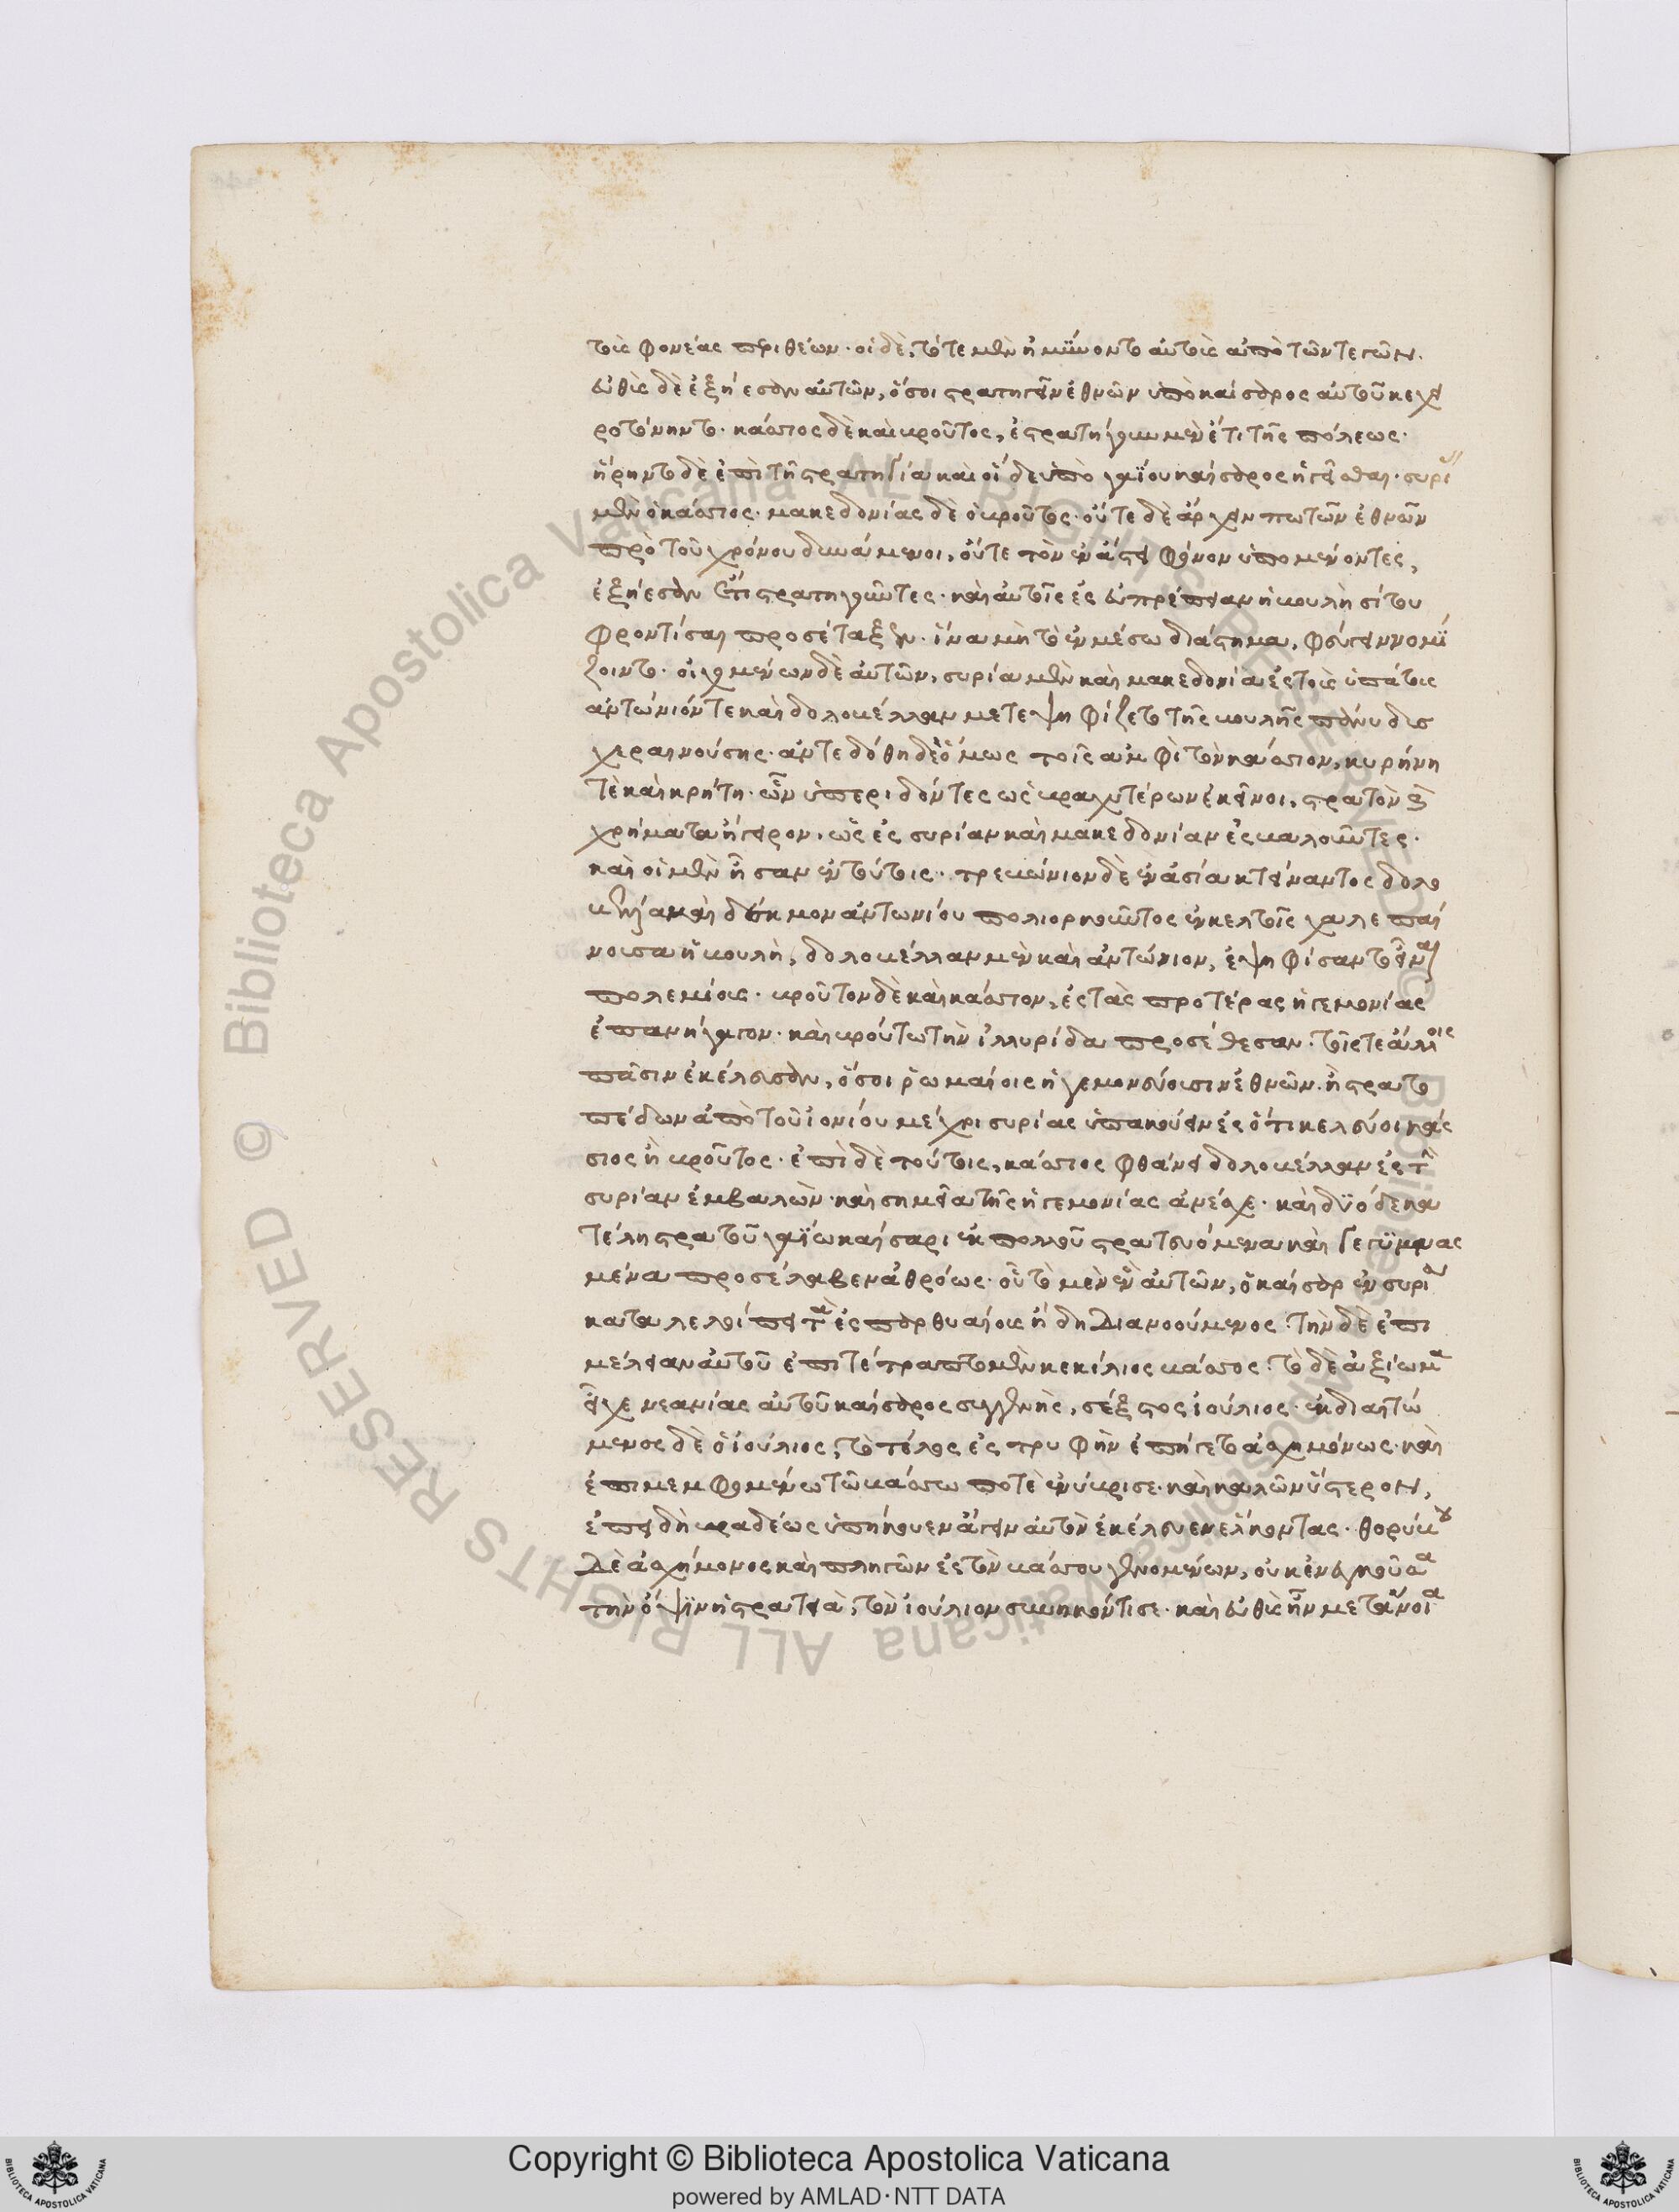 τοὺς φονέας περιθέων· οἱ δὲ, τότε μὲν ἠμύνοντο αὐτοὺς ἀπὸ τῶν τεγῶν.
εὐθὺς δὲ ἐξῄεσαν αὐτῶν, ὅσοι στρατηγεῖν ἐθνῶν ὑπὸ καίσαρος αὐτοῦ κεχει
ροτόνηντο· κάσσιος δὲ καὶ βροῦτος, ἐστρατήγουν μὲν ἔτι τῆς πόλεως·
ᾕρηντο δὲ ἐπὶ τῇ στρατηγία καὶ οἵδε ὑπὸ γαΐου καίσαρος ἡγεῖσθαι· συρί
μὲν ὁ κάσσιος· μακεδονίας δὲ ὁ βροῦτος· οὔτε δὲ ἄρχειν πω τῶν ἐθνῶν
πρὸ τοῦ χρόνου δυνάμενοι, οὔτε τὸν ἐν ἄστει φόνον ὑπομένοντες,
ἐξῄεσαν ἔτι στρατηγοῦντες· καὶ αὐτοῖς ἐς εὐπρέπειαν ἡ βουλὴ σίτου
φροντίσαι προσέταξεν· ἵνα μὴ τὸ ἐν μέσω διάστημα, φεύγειν νομί
ζοιντο· οἰχομένων δὲ αὐτῶν, συρία μὲν καὶ μακεδονία ἐς τοὺς ὑπάτους
ἀντώνιόν τε καὶ δολοβέλλαν μετεψηφίζετο τῆς βουλῆς πάνυ δυσ
χεραινούσης· ἀντεδόθη δὲ ὅμως τοῖς ἀμφὶ τὸν κάσσιον, κυρήνη
τὲ καὶ κρήτη· ὧν ὑπεριδόντες ὡς βραχυτέρων ἐκεῖνοι, στρατὸν καὶ
χρήματα ἤγειρον, ὡς ἐς συρίαν καὶ μακεδονίαν ἐσβαλοῦντες.
καὶ οἱ μὲν ἦσαν ἐν τούτοις· τρεβώνιον δὲ ἐν ἀσία κτείναντος δολο
βέλλα καὶ δέκμον ἀντωνίου πολιορκοῦντος ἐν κελτοῖς χαλεπαί
νουσα ἡ βουλὴ, δολοβέλλαν μὲν καὶ ἀντώνιον, ἐψηφίσαντο εἶναι
πολεμίους· βροῦτον δὲ καὶ κάσσιον, ἐς τὰς προτέρας ἡγεμονίας
ἐπανήγαγον· καὶ βρούτω τὴν ἰλλυρίδα προσέθεσαν· τοῖς τε ἄλλοις
πᾶσιν ἐκέλευσαν, ὅσοι ῥωμαίοις ἡγεμονεύουσιν ἐθνῶν ἢ στρατο
πέδων ἀπὸ τοῦ ἰονίου μέχρι συρίας ὑπακούειν ἐς ὅ τι κελεύοι κάσ
σιος ἢ βροῦτος· ἐπὶ δὲ τούτοις, κάσσιος φθάνει δολοβέλλαν ἐς τὴν
συρίαν ἐμβαλὼν· καὶ σημεῖα τῆς ἡγεμονίας ἀνέσχε· καὶ δυόδεκα
τέλη στρατοῦ γαΐω καίσαρι ἐκ πολλοῦ στρατευόμενα καὶ γεγυμνασ
μένα προσέλαβεν ἀθρόως· οὗ τὸ μὲν ἓν αὐτῶν, ὁ καίσαρ ἐν συρία
καταλελοίπει τότε ἐς παρθυαίους ἤδη διανοούμενος· τὴν δὲ ἐπι
μέλειαν αὐτοῦ ἐπιτέτραπτο μὲν κεκίλιος βάσσος· τὸ δὲ ἀξίωμα
εἶχε νεανίας αὐτοῦ καίσαρος συγγενὴς, σέξστος ἰούλιος· ἐκδιαιτώ
μενος δὲ ὁ ἰούλιος, τὸ τέλος ἐς τρυφὴν ἐπήγετο ἀσχημόνως· καὶ
ἐπιμεμφομένω τῶ βάσσω ποτὲ ἐνύβρισε· καὶ καλῶν ὕστερον,
ἐπειδὴ βραδέως ὑπήκουεν ἄγειν αὐτὸν ἐκέλευεν ἕλκοντας· θορύβου
δὲ ἀσχήμονος καὶ πληγῶν ἐς τὸν βάσσου γενομένων, οὐκ ἐνεγκοῦσα
τὴν ὄψιν ἡ στρατεία, τὸν ἰούλιον συνηκόντισε· καὶ εὐθὺς ἦν μετάνοια